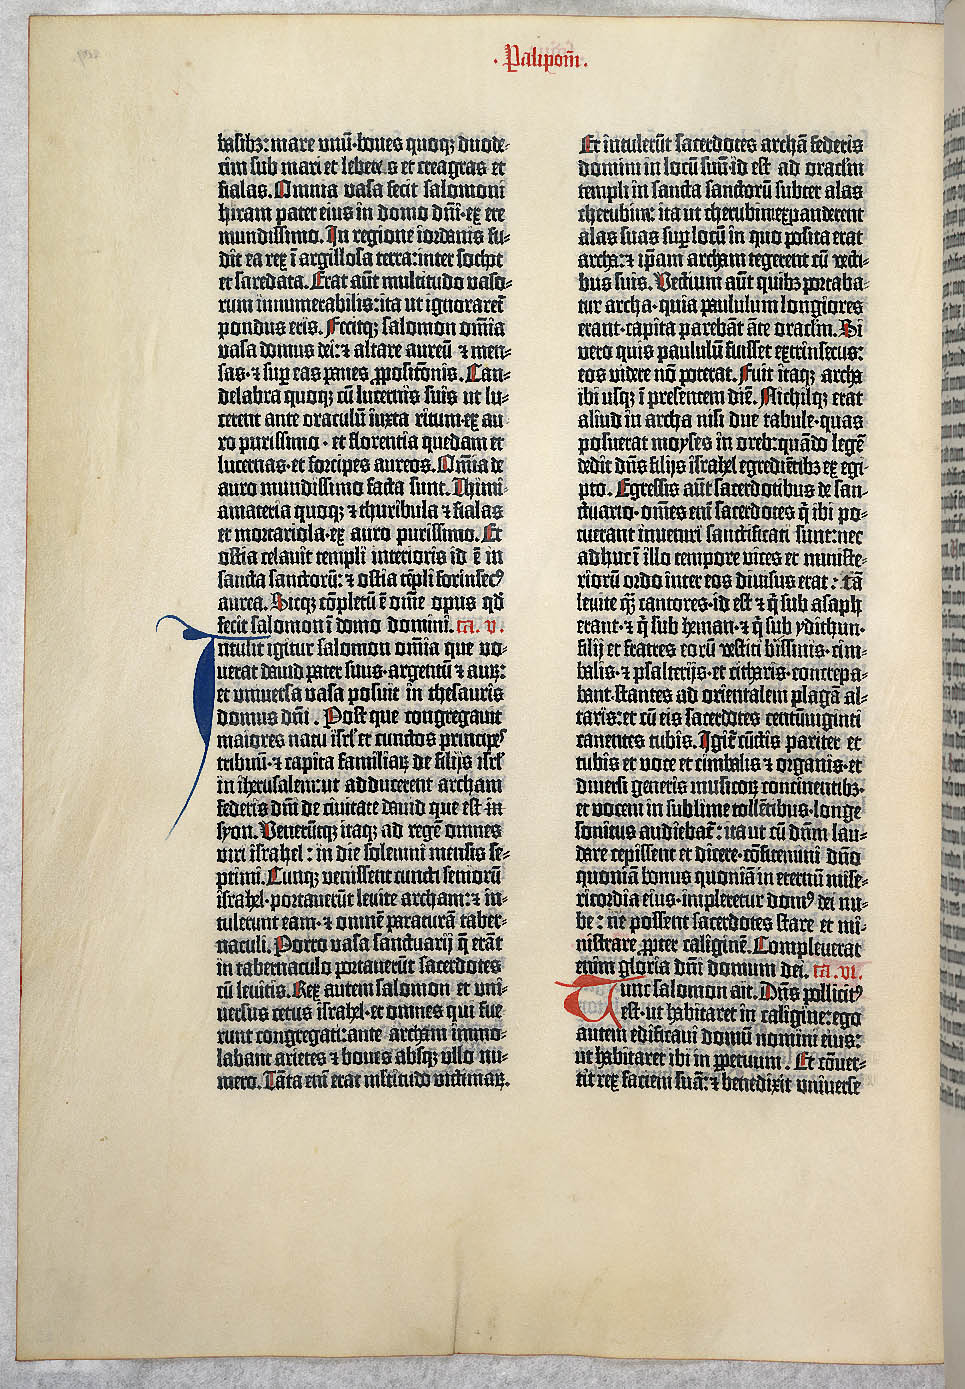 ·Palipom̄·
basibꝫ: mare vnū· boues quoqꝫ duode-
cim sub mari et lebetes et creagras et
fialas. Omnia vasa fecit salomoni
hiram pater eius in domo dn̄i· ex ere
mundissimo. In regione iordanis fu-
dit ea rex ī argillosa terra: inter sochot
et saredata. Erat aūt multitudo vaso-
rum innumerabilis: ita ut ignoraret̄
pondus eris. Fecitqꝫ salomon om̄ia
vasa domus dei: ⁊ altare aureū ⁊ men-
sas· ⁊ sup̄ eas panes ꝓpositōnis. Can-
delabra quoqꝫ cū lucernis suis ut lu-
cerent ante oraculū iuxta ritum· ex au
ro purissimo· et florentia quedam et
lucernas· et forcipes aureos. Om̄ia de
auro mundissimo facta sunt. Thimi-
amateria quoqꝫ ⁊ thuribula ⁊ fialas
et mortariola· ex auro purissimo. Et
ostia celauit templi interioris id ē in
sancta sanctorū: ⁊ ostia tēpli forinsecꝰ
aurea. Sicqꝫ cōpletū ē om̄e opus qd̄
fecit salomon ī domo domini. ca. v.
Intulit igitur salomon om̄ia que vo-
uerat dauid pater suus· argentū ⁊ auꝝ:
et vniuersa vasa posuit in thesauris
domus dn̄i. Post que congregauit
maiores natu isrl̄ et cunctos principes
tribuū· ⁊ capita familiaꝝ de filijs isrl̄
in iherusalem: ut adducerent archam
federis dn̄i de ciuitate dauid que est in
syon. Venerūtqꝫ itaqꝫ ad regē omnes
viri israhel: in die solemni mensis se-
ptimi. Cunqꝫ venissent cuncti seniorū
israhel· portauerūt leuite archam: ⁊ in-
tulerunt eam· ⁊ omnē paraturā taber-
naculi. Porro vasa sanctuarij q̄ erāt
in tabernaculo portauerūt sacerdotes
cū leuitis. Rex autem salomon et vni-
uersus cetus israhel· et omnes qui fue
runt congregati: ante archam immo-
labant arietes ⁊ boues absqꝫ vllo nu-
mero. Tāta eni erat mltitudo victimaꝝ.
Et intulerūt sacerdotes archā federis
domini in locū suū· id est ad oraclm
templi in sancta sanctorū subter alas
cherubim: ita ut cherubim expanderent
alas suas sup̄ locū in quo posita erat
archa: ⁊ ip̄am archam tegerent cū vecti-
bus suis. Vectium aūt quibꝫ portaba-
tur archa· quia paululum longiores
erant· capita parebāt āte oraclm. Si
vero quis paululū fuisset extrinsecus:
eos videre nō poterat. Fuit itaqꝫ archa
ibi usqꝫ ī presentem diē. Nichilqꝫ erat
aliud in archa nisi due tabule· quas
posuerat moyses in oreb: quādo legē
dedit dn̄s filijs israhel egrediētibꝫ ex egi-
pto. Egressis aūt sacerdotibus de san-
ctuario· om̄es eni sacerdotes q̄ ibi po-
tuerant inueniri sanctificati sunt: nec
adhuc ī illo tempore vices et ministe-
riorū ordo inter eos diuisus erat: tā
leuite qꝫ cantores· id est ⁊ q̄ sub asaph
erant· ⁊ q̄ sub heman· ⁊ q̄ sub ydithun·
filij et fratres eorū vestiti bissinis· cim-
balis· ⁊ psalterijs· et citharis· concrepa-
bant· stantes ad orientalem plagā al-
taris: et cū eis sacerdotes centūuiginti
canentes tubis. Igit̄ cūctis pariter et
tubis et voce et cimbalis ⁊ organis· et
diuersi generis musicoꝝ concinentibꝫ·
et vocem in sublime tollētibus· longe
sonitus audiebat̄: ita ut cū dn̄m lau-
dare cepissent et dicere· cōfitemini dn̄o
quoniam bonus quoniā in eternū mise-
ricordia eius· impleretur domꝰ dei nu-
be: ne possent sacerdotes stare et mi-
nistrare ꝓpter caliginē. Compleuerat
enim gloria dn̄i domum dei. ca. vi.
Tunc salomon ait. Dn̄s pollicitꝰ
est· ut habitaret in caligine: ego
autem edificaui domū nomini eius:
ut habitaret ibi in ꝑpetuum. Et cōuer-
tit rex faciem suā: ⁊ benedixit vniuerse